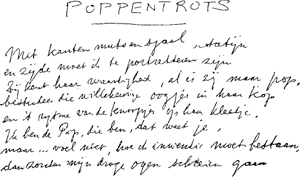 POPPENTROTS
Met kanten muts en sjaal, satijn
en zijde moet ik te portretteren zijn
Zij kent haar waardigheid, al is zij maar pop,
bestudeer die willekeurige oogjes in haar kop
en it ritme van de knoopjes op haar kleedje.
Ik ben de Pop, zie ben, dat weet je,
maar... voel niet, hoe ik inwendig moet bestaan,
dan zouden mijn droge ogen schreien gaan